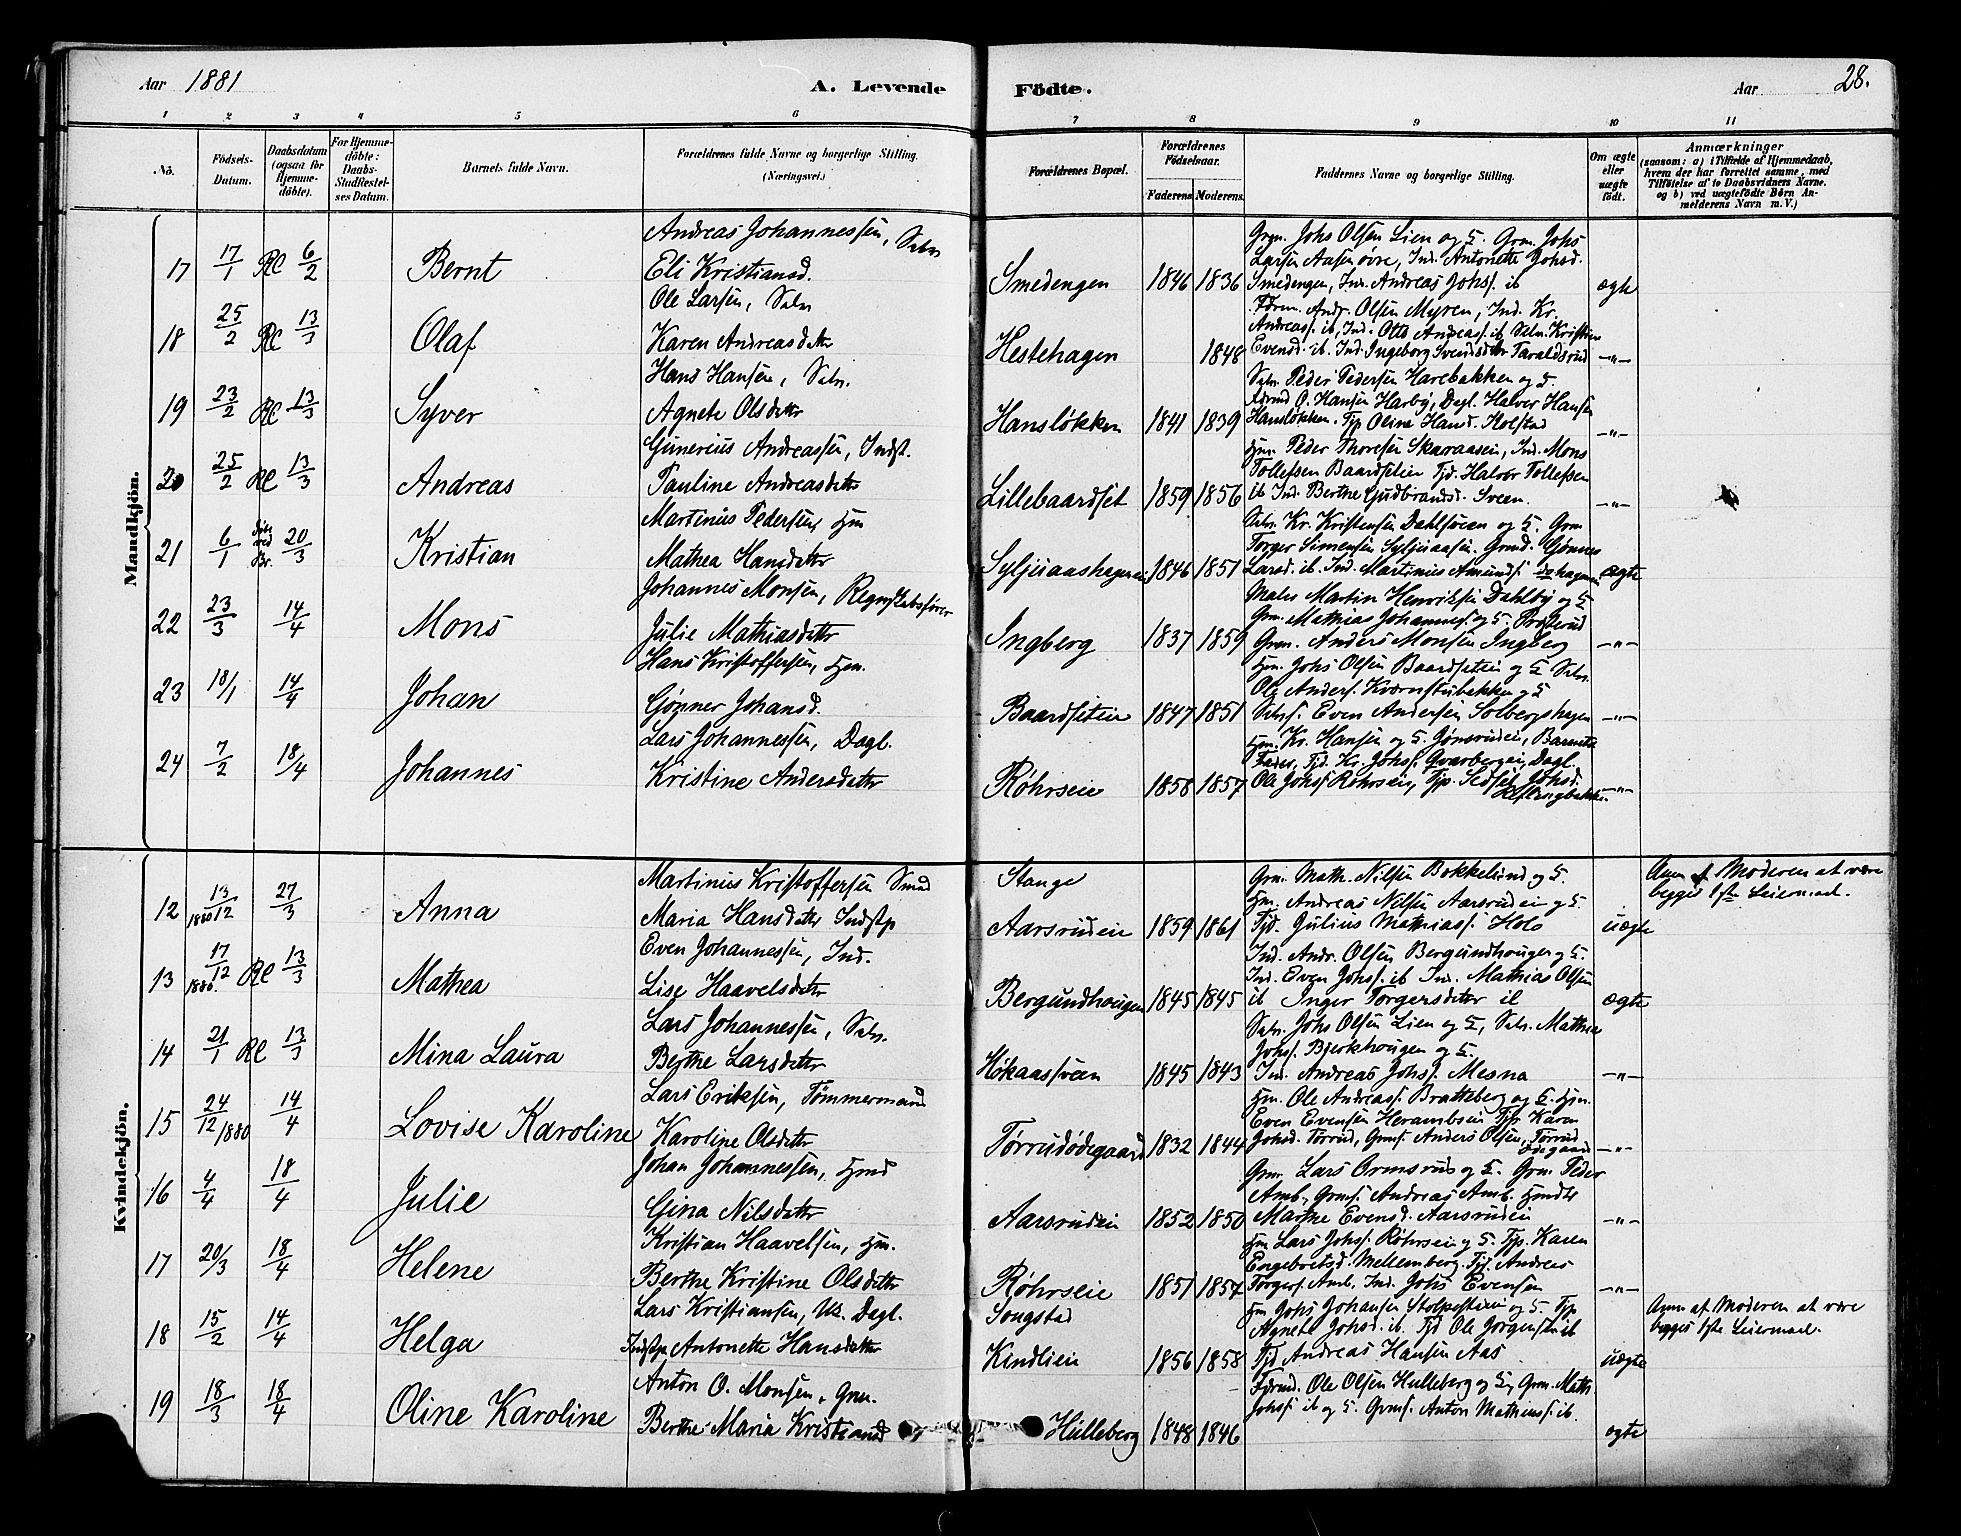 Aar 1881
A. Levende
Födte.
Aar
28.
1 2 3 4 5 6 7 8 9 10 11
No.
Födsels-
Datum.
Daabsdatum
(ogsaa for
Hjemme-
döbte).
For Hjemme-
döbte:
Daabs-
Stadfæstel-
ses Datum.
Barnets fulde Navn.
Forældrenes fulde Navne og borgerlige Stilling.
(Næringsvei.)
Forældrenes Bopæl.
Forældrenes
Födselsaar.
Faderens
Moderens
Faddernes Navne og borgerlige Stilling.
Om ægte
eller
uægte
født.
Anmærkninger
(saasom: a) i Tilfælde af Hjemmedaab,
hvem der har forrettet samme, med
Tilföielse af to Daabsvidners Navne.
og b) ved uægtefödte Börn An-
melderens Navn m.V.)
Mandkjön.
17 17/1 6/2 Bernt
Andreas Johannessen, Selv
Eli Kristiansd.
Smedengen 1846 1836
Grm. Johs Olsen Lien og H. Grm. Johs
Larsen Aasen øvre, Ind. Antonette Johsd.
Smedengen, Ind. Andreas Johs. ib
ægte
18 25/2 13/3 Olaf
Ole Larsen, Selv
Karen Andreasdatter
Hestehagen 1848
Andr. Olsen Myren, Ind. Kr.
Andreass. ib, Ind. Otto Andreass. ib Selv. Kristian
Evensd. ib. Ind. Ingeborg Svendsdtr Taraldsrud
-"-
19 23/2 13/3 Syver
Hans Hansen, Selv.
Agnete Olsdatter
Hansløkken 1841 1839
Selv. Peder Pedersen Harebakken og H.
O. Hansen Harby, Dagl. Halvor Hansen
Hansløkken. Tjp Oline Hansd. Holstad
-"-
20 25/2 13/3 Andreas
Gunerius Andreassen, Indst.
Pauline Andreasdatter
Lillebaardset 1859 1856
Hm. Peder Thoresen Skaraasen, Ind. Mons
Tollefsen Baardseteie Tjd. Halvor Tollefsen
ib Ind. Berthe Gudbrandsd. Sveen.
-"-
21 6/1 20/3 Kristian
Martinus Pedersen, Hm
Mathea Hansdatter
Syljuaashagen 1846 1851
Selv. Kr. Kristensen Dahlsveen og H. Grm
Torger Simensen Syljuaasen. Grmd. Gjønnes
Larsd. ib. Ind. Martinus Amunds.
ægte
22 23/3 14/4 Mons
Johannes Monsen, Regnskabsfører
Julie Mathiasdatter
Ingberg 1837 1859
Maler Martin Henriksen Dahlby og H
Grm. Mathias Johanness. og H. Prosterud
Grm. Anders Monsen Ingberg
-"-
23 18/1 14/4 Johan
Hans Kristoffersen, Hm.
Gjønner Johansd.
Baardseteie 1847 1851
Hm. Johs Olsen Baardseteie og H Selv.
Ole Anders. Kværnstubakken og H
Selvs. Even Andersen Solbergshagen
-"-
24 7/2 18/4 Johannes
Lars Johannessen, Dagl.
Kristine Andersdatter
Røhrseie 1858 1857
Hm. Kr. Hansen og H. Gjønsrudeie, Barnets
Fader, Tjd. Kr. Johs. Gvarbergeie, Dagl.
Ole Johs. Røhrseie, Tjp. Johsd.
-"-
Kvindekjön.
12 13/12 1880 27/3 Anna
Martinus Kristoffersen Smed
Maria Hansdatter Indstp
Stange
Aarsrudeie 1859 1861
Grm. Math. Nilsen Bokkelund og H.
Hm. Andreas Nilsen Aarsrudeie og H.
Tjd. Julius Mathiass. Holo
uægte
Anm. af Moderen at være
begges 1ste Leiermaal.
13 17/12 1880 13/3 Mathea
Even Johannessen, Ind.
Lise Haavelsdatter
Bergundhougen 1845 1845
Ind. Andr. Olsen Bergundhougen og H.
Ind. Even Johs. ib Ind. Mathias Olsen
ib Inger Torgersdatter ib
ægte
14 21/1 13/3 Mina Laura
Lars Johannessen, Selv.
Berthe Larsdatter
Høkaassveen 1845 1843
Selv. Johs Olsen Lien og H, Selv. Mathea
Johs. Bjerkhougen og H.
Ind. Andreas Johs. Mesna
-"-
15 24/12 1880 14/4 Lovise Karoline
Lars Eriksen, Tømmermand
Karoline Olsdatter
Tørrudødegaard 1832 1844
Hm. Ole Andreass. Bratteberg og H. Hm.
Even Evensen Herambseie Tjp. Karen
Johsd. Tørrud, Grms. Anders Olsen, Tørrud
ødegaard
-"-
16 4/4 18/4 Julie
Johan Johannessen, Hmd
Gina Nilsdatter
Aarsrudeie 1852 1850
Grm. Lars Ormsrud og H. Grm. Peder
Amb, Grms. Andreas Amb.
Marthe Evensd. Aarsrudeie
-"-
17 20/3 18/4 Helene
Kristian Haavelsen, Hm.
Berthe Kristine Olsdatter
Røhrseie 1851 1857
Hm Lars Johs. Røhrseie og H. Tjp. Karen
Engebretsd. Mellemberg. Tjd. Andreas
Torgers. Amb, Ind. Johs Evensen
-"-
18 15/2 14/4 Helga
Lars Kristiansen, Uk. Dagl.
Indstp Antonette Hansdatter
Songstad
Kindlieie 1856 1858
Hm Johs Johansen Stolpesteie og H. Tjp
Agnete Johsd. ib. Tjd Ole Jørgensen ib
Tjd Andreas Hansen Aas
uægte
Anm af Moderen at være
begges 1ste Leiermaal.
19 18/3 18/4 Oline Karoline
Anton O. Monsen, Grm.
Berthe Maria Kristiansd
Hulleberg 1848 1846
Ole Olsen Hulleberg og H, Grm. Math.
Johs. ib og H. Grms. Anton Mathiass. ib.
ægte